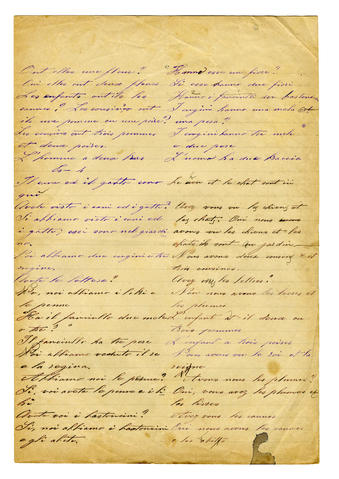 Ont elles une fleur?
Oui elles ont deux fleurs
Les enfants ont-ils les
cannes? Les cousins ont
ils une pomme ou une poire?
Les cousins ont trois pommes
et deux poires.
L'homme a deux bras
Il cane ed il gatto sono
qui
Avete visto i cani ed i gatti?
Si abbiamo visto i cani ed
i gatti; essi sono nel giardi
no.
Noi abbiamo due cugini e tre
cugine.
Avete le lettere?
Si, noi abbiamo i e
le penne
Ha il fanciullo due mele
o tre?
Il fanciullo ha tre pere
Noi abbiamo veduto il re
e la regina.
Abbiamo noi le penne?
Si, voi avete le penne e i li
Avete voi i bastoncini?
Si, noi abbiamo i bastoncini
e gli abiti.
Hanno esse un fiore?
Si esse hanno due fiori
Hanno i fanciulli
I cugini hanno una mela o
una pera?
I cugini hanno tre mele
e due pere
L'uomo ha due braccia
Le chien et le chat sont ici
Avez vous vu les chiens et
les chats; Oui nous
avons vu les chiens et les
chats, ils sont au jardin
Nous avons deux cousins et
trois cousines.
Avez vous les lettres?
Oui nous avons les livres et
les plumes
L'enfant a t il deux ou
trois pommes
L'enfant a trois poires
Nous avons vu le roi et la
reine
Avons nous les plumes?
Oui, vous avez les plumes et
les livres
Avez vous les cannes
Oui nous avons les cannes
et les